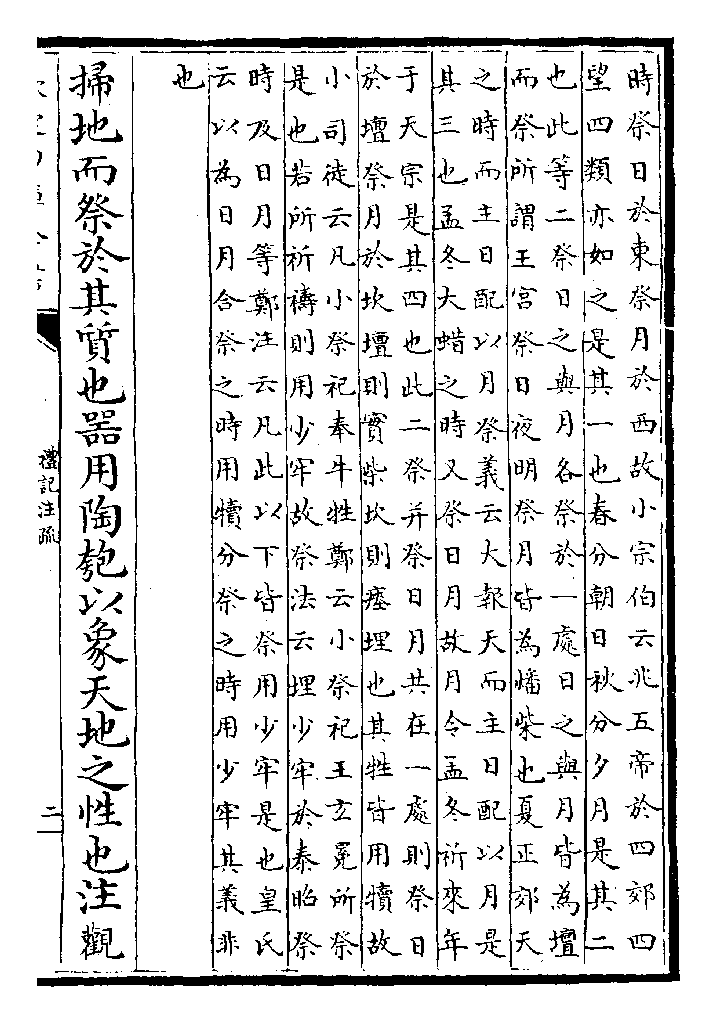 時祭日於東祭月於西故小宗伯云兆五帝於四郊四
望四類亦如之是其一也春分朝日秋分夕月是其二
也此等二祭日之與月各祭於一處日之與月皆為壇
而祭所謂王宮祭日夜明祭月皆為燔柴也夏正郊天
之時而主日配以月祭義云大報天而主日配以月是
其三也孟冬大蜡之時又祭日月故月令孟冬祈來年
于天宗是其四也此二祭并祭日月共在一處則祭日
於壇祭月於坎壇則實柴坎則瘞埋也其牲皆用犢故
小司徒云凡小祭祀奉牛牲鄭云小祭祀王玄冕所祭
是也若所祈禱則用少牢故祭法云埋少牢於泰昭祭
時及日月等鄭注云凡此以下皆祭用少牢是也皇氏
云以為日月合祭之時用犢分祭之時用少牢其義非
也
掃地而祭於其質也器用陶匏以象天地之性也注觀
禮記注疏
二